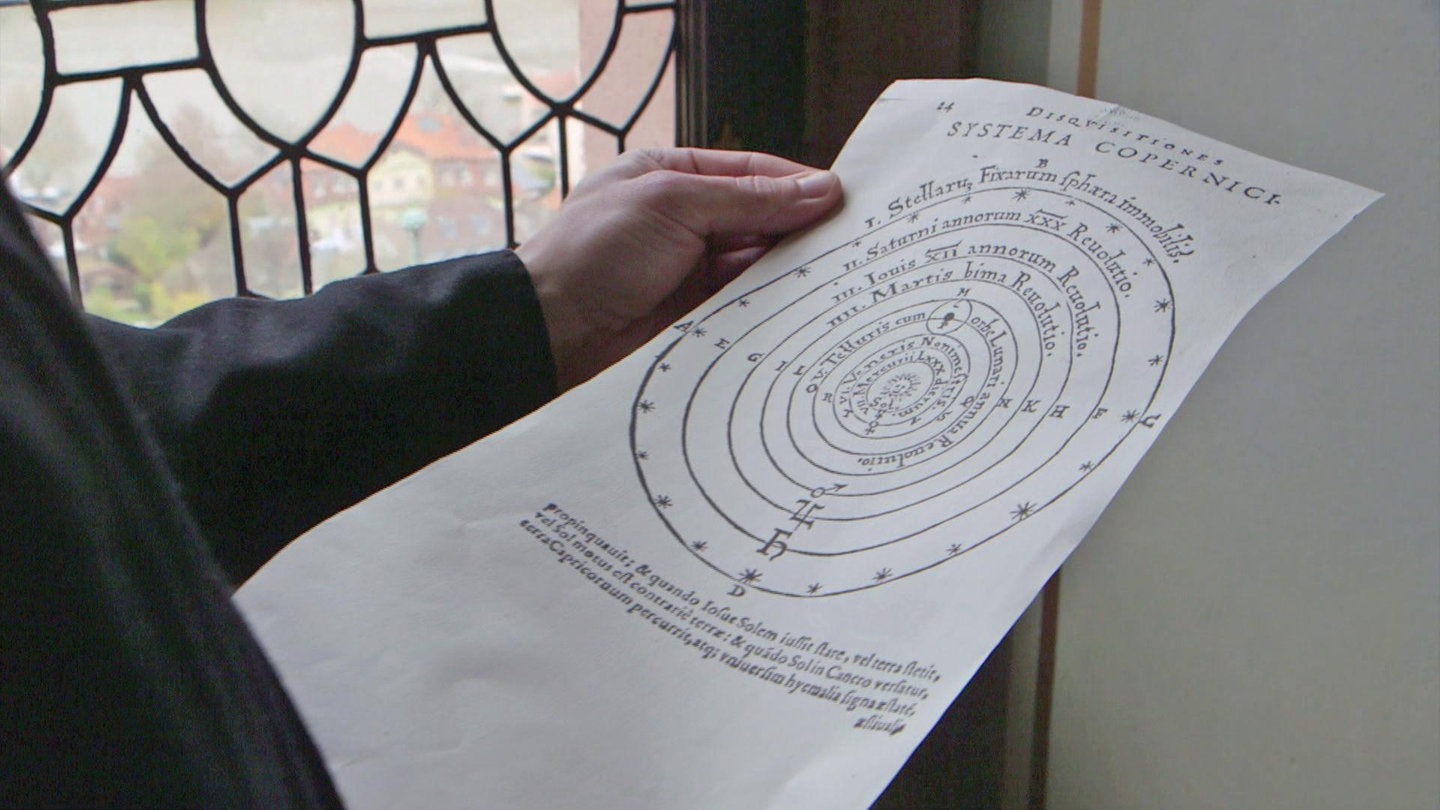 14 DISQVISITIONES
SYSTEMA COPERNICI.
B
I. Stellarũ Fixarum sphæra immobilis.
II. Saturni annorum XXX Reuolutio.
III. Iouis XII annorum Reuolutio.
IIII. Martis bima Reuolutio.
M
V. Telluris cum orbe Lunari annua Reuolutio.
VI. Veneris Nonimestris.
VII. Mercurii LXXX dierum.
Sol
A E G I L
N K H
♂
♃
♄
D
propinquauit; & quando Iosue Solem iussit stare, vel terra stetit,
vel Sol motus est contrariè terræ: & quãdo Sol in Cancro versatur,
terra Capricornum percurrit, atq; vniuersim hyemalia signa æstatẽ,